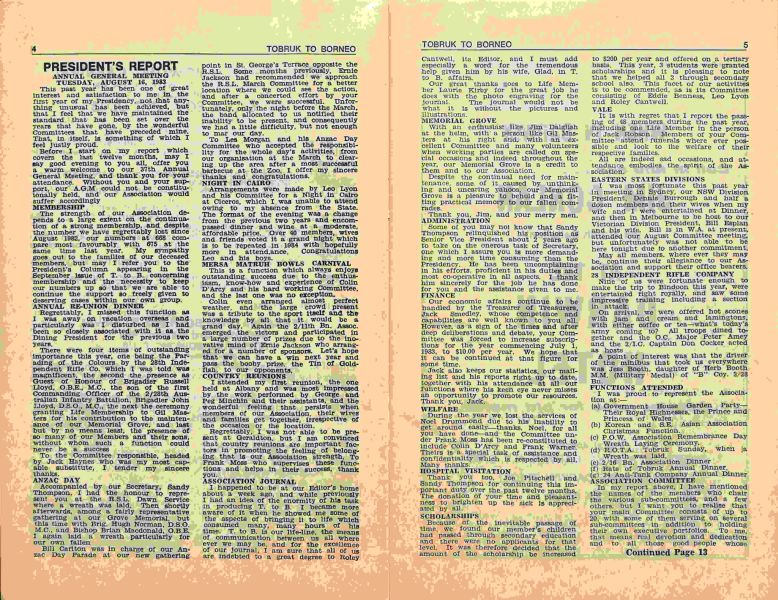 4
TOBRUK TO BORNEO
PRESIDENT'S REPORT
ANNUAL GENERAL MEETING
TUESDAY, AUGUST 16, 1983
This past year has been one of great
interest and satisfaction to me in the
first year of my Presidency, not that any-
thing unusual has been achieved, but
that I feel we have maintained the
standard that has been set over the
years that have gone by the wonderful
Committees that have preceded mine.
That, in itself, is something of which I
feel justly proud.
Before I start on my report which
covers the last twelve months, may I
say good evening to you all, offer you
a warm welcome to this 37th Annual
General Meeting, and thank you for your
attendance. Without you and your sup-
port, our A.G.M. could not be constitu-
tionally held, and our Association would
suffer accordingly.
MEMBERSHIP
The strength of our Association de-
pends to a large extent on the continua-
tion of a strong membership, and despite
the number we have regrettably lost since
August 1982, our numbers at
pare most favourably with 675 at the
same time last year. My sympathy
goes out to the families of our deceased
members, but may I refer you to the
President's Column appearing in the
September issue of T. to B., concerning
membership and the necessity to keep
our numbers up so that we are able to
continue the support so freely given to
deserving cases within our own group.
ANNUAL RE-UNION DINNER
Regrettably, I missed this function as
I was away on vacation overseas and
particularly was I disturbed as I had
been so closely associated with it as the
Dining President for the previous two
years.
There were four items of outstanding
importance this year, one being the Par-
ading of the Colours by the 28th Inde-
pendent Rifle Co. which I was told was
magnificent, the second the presence as
Guest of Honour of Brigadier Russell
Lloyd, O.B.E., M.C., the son of the first
Commanding Officer of the 2/28th Aus-
tralian Infantry Battalion, Brigadier John
Lloyd, D.S.O., M.C., the next the ceremony
granting Life Membership to Gil Mas-
ters for his contribution in the mainten-
ance of our Memorial Grove, and last
but by no means least, the presence of
so many of our Members and their sons,
without whom such a function could
never be a success.
To the Committee responsible, headed
by Jack Hayner who was my most cap-
able substitute, I tender my sincere
thanks.
ANZAC DAY
Accompanied by our Secretary, Sandy
Thompson, I had the honour to repre-
sent you at the R.S.L. Dawn Service
where a wreath was laid. Then shortly
afterwards, among a fairly representative
gathering at our Grove Memorial, but
this time with Brig. Hugh Norman, D.S.O.,
M.C., and Bishop Brian Macdonald, O.B.E.,
I again laid a wreath particularly for
our own fallen.
Bill Carlton was in charge of our An-
zac Day Parade at our new gathering
point in St. George's Terrace opposite the
R.S.L. Some months previously, Ernie
Jackson had recommended we approach
the R.S.L. March Committee for a better
location where we could see the action,
and after a concerted effort by your
Committee, we were successful. Unfor-
tunately, only the night before the March,
the band allocated to us notified their
inability to be present, and consequently
we had a little difficulty, but not enough
to mar our day.
To Eric Morgan and his Anzac Day
Committee who accepted the responsibi-
lity for the whole day's activities, from
our organisation at the March to clear-
ing up the area after a most successful
barbecue at the Zoo, I offer my sincere
thanks and congratulations.
NIGHT IN CAIRO
Arrangements were made by Leo Lyon
and his Committee for a Night in Cairo
at Cicero's, which I was unable to attend
owing to my absence from the State.
The format of the evening was a change
from the previous two years and encom-
passed dinner and wine at a moderate,
affordable price. Over 40 members, wives
and friends voted it a grand night which
is to be repeated in 1984 with hopefully
a larger attendance. Congratulations
Leo and his boys.
MERSA MATRUH BOWLS CARNIVAL
This is a function which always enjoys
outstanding success due to the enthus-
iasm, know-how and experience of Colin
D'Arcy and his hard working Committee,
and the last one was no exception.
Colin even arranged almost perfect
weather, and the large crowd present
was a tribute to the sport itself and the
knowledge by all that it would be a
grand day. Again the 2/11th Bn. Assoc.
emerged the victors and participated in
a large number of prizes due to the ino-
vative mind of Ernie Jackson who arrang-
ed for a number of sponsors. Let's hope
that we can have a win next year and
pass the booby prize, the Tin of Gold-
fish, to our opponents.
COUNTRY REUNIONS
I attended my first reunion, the one
held at Albany and was most impressed
by the work performed by George and
Peg Minchin and their assistants, and the
wonderful feeling that persists when
members of our Association, their wives
and friends get together, irrespective of
the occasion or the location.
Regrettably, I was not able to be pres-
ent at Geraldton, but I am convinced
that country reunions are important fac-
tors in promoting the feeling of belong-
ing that is our Association strength. To
Frank Moss who supervises these func-
tions and helps in their success, thank
you.
ASSOCIATION JOURNAL
I happened to be at our Editor's home
about a week ago, and while previously
I had an idea of the enormity of his task
in producing T. to B. I became more
aware of it when he showed me some of
the aspects of bringing it to life which
consumed many, many hours of his
time. T. to B. is our life-line, the means
of communication between us all where
ever we may be, and for the excellence
of our journal, I am sure that all of us
are indebted to a great degree to Roley
TOBRUK TO BORNEO
5
Cantwell, its Editor, and I must add
especially a word for the tremendous
help given him by his wife, Glad, in T.
to B. affairs.
Our great thanks goes to Life Mem-
ber Laurie Kirby for the great job he
does with the photo engraving for the
journal. The journal would not be
what it is without the pictures and
illustrations.
MEMORIAL GROVE
With an enthusiast like Jim Dalgleish
at the helm, with a person like Gil Mas-
ters at his right side, and with an ex-
cellent Committee and many volunteers
when working parties are called on spe-
cial occasions and indeed throughout the
year, our Memorial Grove is a credit to
them and to our Association.
Despite the continual need for main-
tenance, some of it caused by unthink-
ing and uncaring yahoos, our Memorial
Grove is a pleasure to behold and a fit-
ting practical memory to our fallen com-
rades.
Thank you, Jim, and your merry men.
ADMINISTRATION
Some of you may not know that Sandy
Thompson relinquished his position as
Senior Vice President about 2 years ago
to take on the onerous task of Secretary,
one which I assure you is more demand-
ing and more time consuming than the
Presidency. He has been uncomplaining
in his efforts, proficient in his duties and
most co-operative in all aspects. I thank
him sincerely for the job he has done
for you and the assistance given to me.
FINANCE
Our economic affairs continue to be
handled by the Treasurer of Treasurers,
Jack Smedley, whose competence and
capabilities are well known to you all.
However, as a sign of the times and after
deep deliberations and debate, your Com-
mittee was forced to increase subscrip-
tions for the year commencing July 1,
1983, to $10.00 per year. We hope that
it can be continued at that figure for
some time.
Jack also keeps our statistics, our mail-
ing list and his reports right up to date,
together with his attendance at all our
functions where his keen eye never misses
an opportunity to promote our resources.
Thank you, Jack.
WELFARE
During the year we lost the services of
Noel Drummond due to his inability to
get around easily—thanks, Noel, for all
you have done—and the Committee un-
der Frank Moss has been re-constituted to
include Colin D'Arcy and Frank Warner.
Theirs is a special task of assistance and
confidentiality which is respected by all.
Many thanks.
HOSPITAL VISITATION
Thank you to Joe Pitchell and
Sandy Thompson for continuing this im-
portant duty over the past twelve months.
The donation of your time and pleasant-
ries to brighten up the sick is appreci-
ated by all.
SCHOLARSHIPS
Because of the inevitable passage of
time, we found our member's children
had passed through secondary education
and there were no applicants for that
level. It was therefore decided that the
amount of the scholarship be increased
to $200 per year and offered on a tertiary
basis. This year, 3 students were granted
scholarships and it is pleasing to note
that we helped all 3 through secondary
school also. This facet of our activities
is to be commended, as is its Committee
consisting of Eddie Benness, Leo Lyon
and Roley Cantwell.
VALE
It is with regret that I report the pass-
ing of 48 members during the past year,
including one Life Member in the person
of Jack Robson. Members of your Com-
mittee attend funerals where ever pos-
sible and look to the welfare of their
respective families.
All are indeed sad occasions, and at-
tendance embodies the spirit of the As-
sociation.
EASTERN STATES DIVISIONS
I was most fortunate this past year
in meeting in Sydney, our NSW Division
President, Dennis Burrough and half a
dozen members and their wives when my
wife and I were entertained at Dinner,
and then in Melbourne to be host to our
Victorian Division President, Bill Bird
and his wife. Bill is in W.A. at present,
attended our August Committee meeting,
but unfortunately was not able to be
here tonight due to another commitment.
May all members, where ever they may
be, continue their allegiance to our As-
sociation and support their office bearers.
28 INDEPENDENT RIFLE COMPANY
Nine of us were fortunate enough to
make the trip to Bindoon this year, were
entertained right royally, and saw some
impressive firing including a section
in attack.
On arrival, we were offered hot scones
with jam and cream and lamingtons,
with either coffee or tea—what's today's
army coming to? All troops dined to-
gether and the O.C. Major Peter Amm
and the 2/I.C. Captain Don Cocker acted
as hosts.
A point of interest was that the driver
of the minibus that took us everywhere
was Jess Booth, daughter of Herb Booth
M.M. (Military Medal) of "B" Coy. 2/28
Bn.
FUNCTIONS ATTENDED
I was proud to represent the Associa-
tion at:—
(a) Government House Garden Party—
Their Royal Highnesses, the Prince and
Princess of Wales.
(b) Korean and S.E. Asian Association
Christmas Function.
(c) P.O.W. Association Remembrance Day
Wreath Laying Ceremony.
(d) R.O.T.A. Tobruk Sunday, when a
Wreath was laid.
(e) 2/16 Bn. Association Annual Dinner.
(f) Rats of Tobruk Annual Dinner.
(g) Anti-Tank Company Annual Dinner.
ASSOCIATION COMMITTEE
In my report above, I have mentioned
the names of the members who chair
the various sub-committees, and a few
others, but I want you to realise that
your main Committee consists of up to
20 with some of them serving on several
sub-committees in addition to holding
an important executive portfolio. To me,
that means real devotion and dedication
and to all those good people those
Continued Page 13